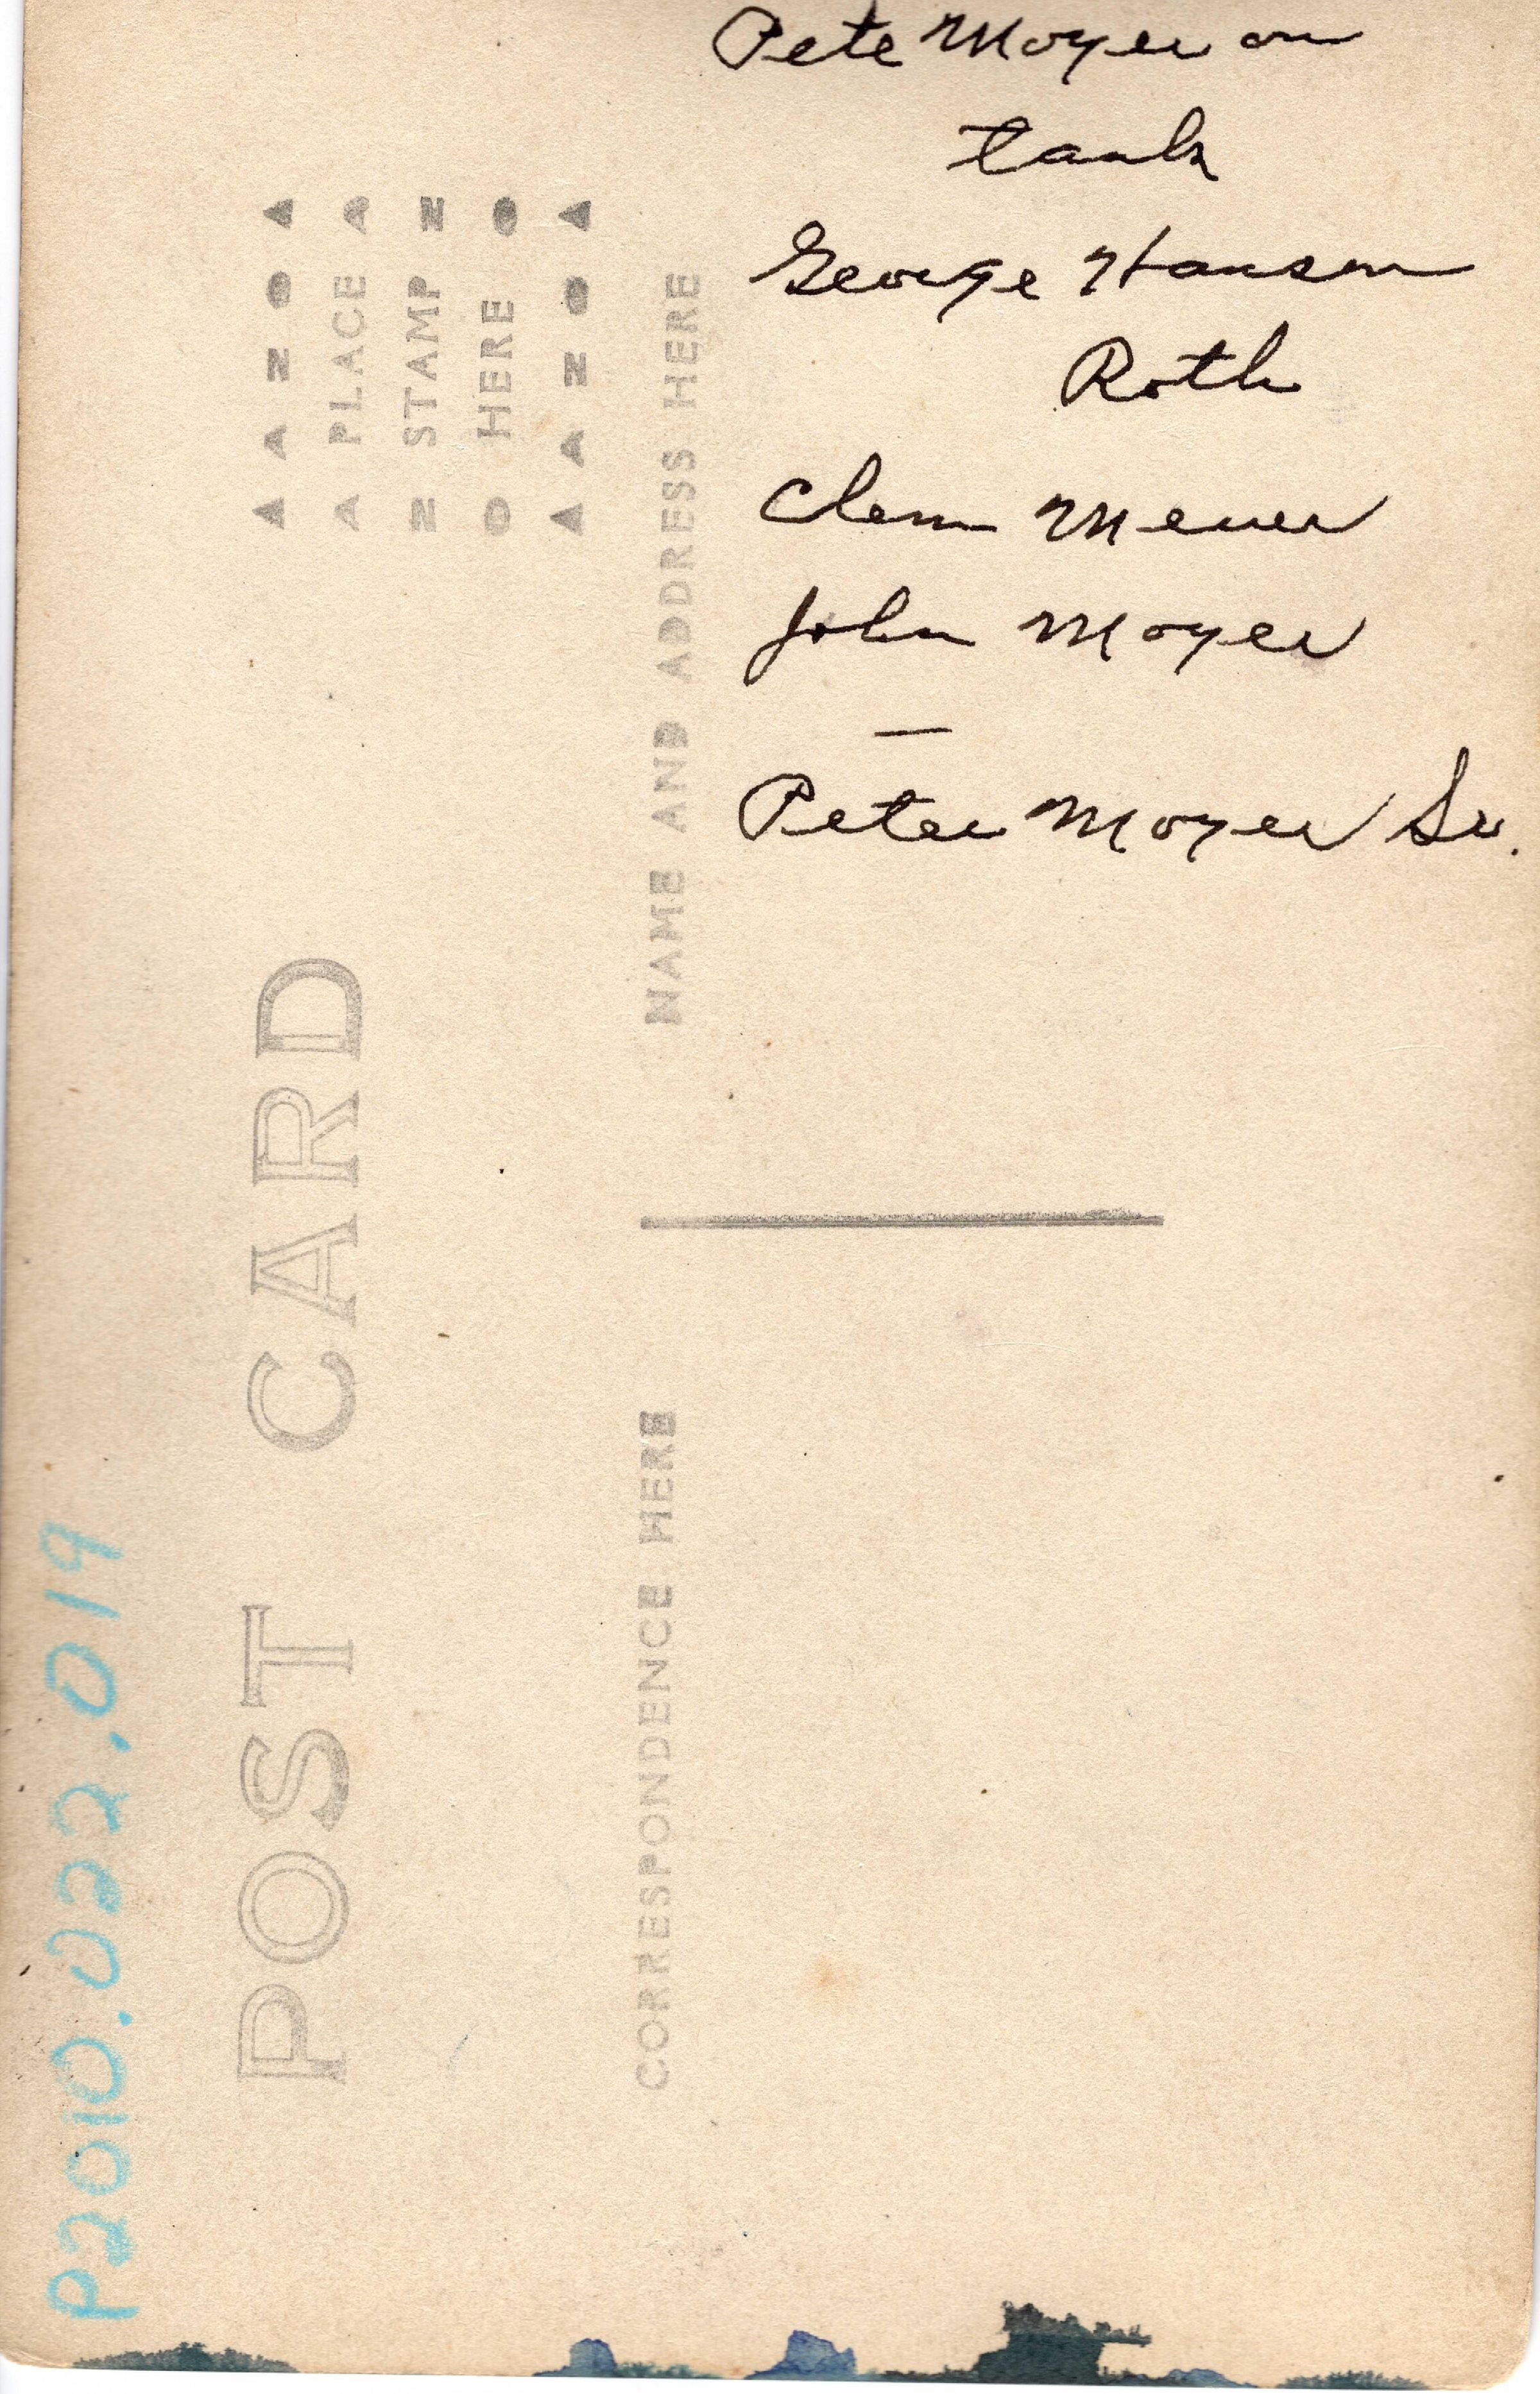 Pete Moyer on
tank
George Hanson
Roth
Clem Meuer
John Moyer
—
Peter Moyer Sr.
POST CARD
A PLACE A
N STAMP N
O HERE O
NAME AND ADDRESS HERE
CORRESPONDENCE HERE
P2010.022.019